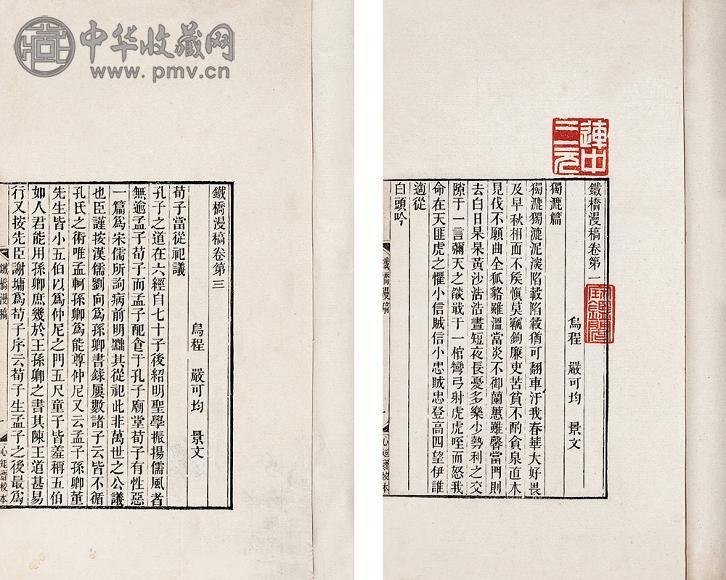 中华收藏网
www.pmv.cn
連中
三元
鐵橋漫稿卷第一
烏程 嚴可均 景文
獨漉篇
獨漉獨漉泥淡陷轂陷轂猶可翻車汙我春華大好畏
及早秋相面不矦愼莫竊鉤廉吏苦貧不酌貪泉直木
見伐不願曲全狐貉雖溫當炎不御蘭蕙雖馨當門則
去白日杲杲黃沙浩浩晝短夜長憂多樂少勢利之交
隙于一言彌天之燄戢于一棺彎弓射虎虎咥而怒我
命在天匪虎之懼小信賊信小忠賊忠登高四望伊誰
適從
白頭吟
鐵橋漫稿
心矩齋校本
鐵橋漫稿卷第三
烏程 嚴可均 景文
荀子當從祀議
孔子之道在六經自七十子後紹明聖學振揚儒風者
無逾孟子荀子而孟子配食于孔子廟堂荀子有性惡
一篇爲宋儒所詢病前明黜其從祀此非萬世之公議
也臣謹按漢儒劉向爲孫卿書錄屢數諸子云皆不循
孔氏之術唯孟軻孫卿爲能尊仲尼又云孟子孫卿董
先生皆小五伯以爲仲尼之門五尺童子皆羞稱五伯
如人君能用孫卿庶幾於王孫卿之書其陳王道甚易
行又按先臣謝墉爲荀子序云荀子生孟子之後最爲
鐵橋漫稿
心矩齋校本